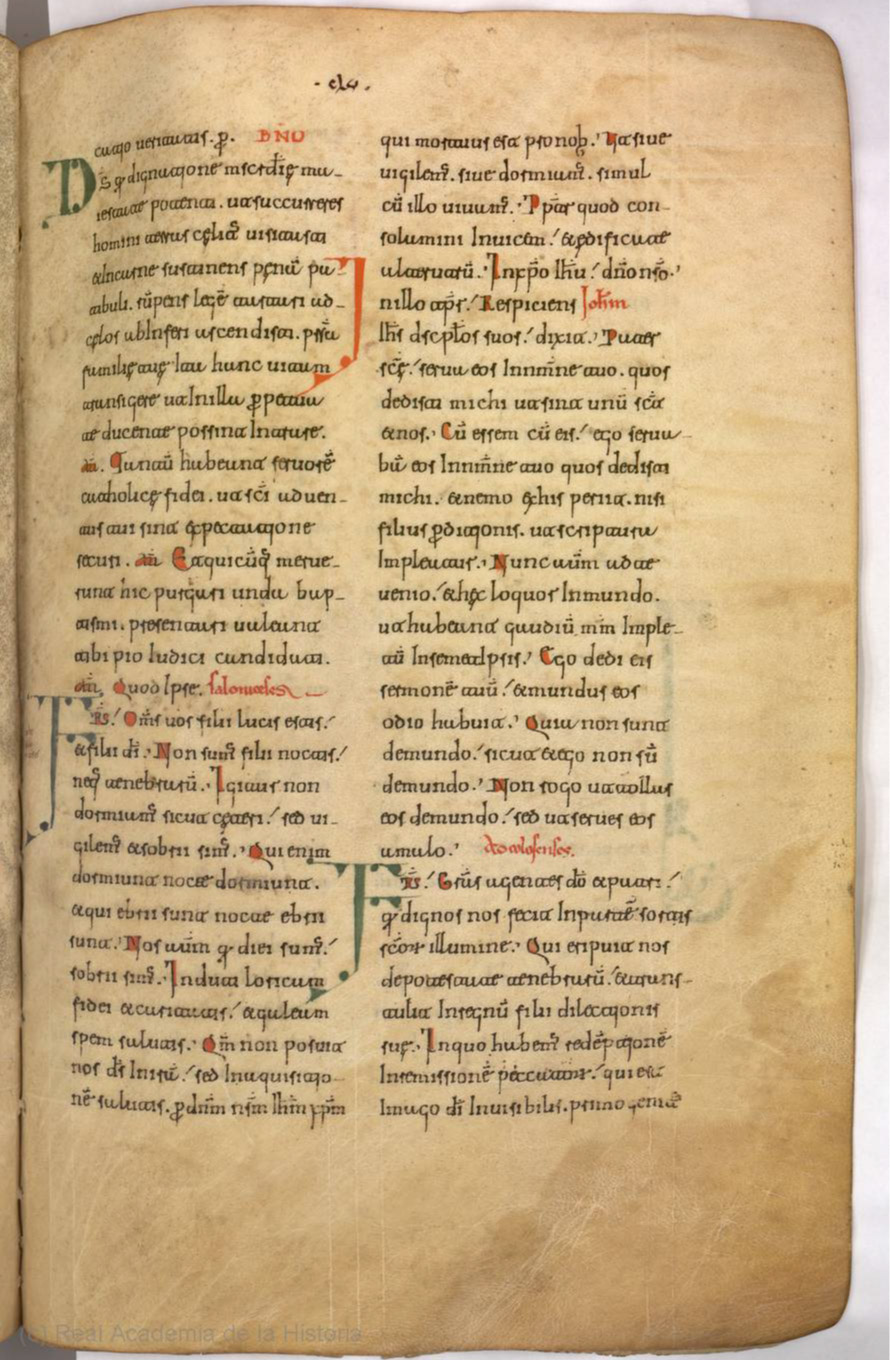 · clv ·
ueritatis. p̱. BNO
Ds̄ q̱ dignatione mscrdię ma-
iestate potentia. ut succurreres
homini
& in carne sustinens pęnā pa-
tibuli. sup̄ens legē tartari ad-
cęlos ab inferi ascendisti. pssta
familię tuę lau hunc uiam
transigere ut in illa p̱petua
te ducente possint intrare.
am̄. Quatenus habeant feruorē
catholicę fidei. ut scī aduen-
tus tui sint expectatione
securi. am̄ Et quicūq̄ merue-
runt hic purgari unda bap-
tismi. presentari ualeant
tibi pio iudici candidati.
am̄. Quod ipse. salonicenses
Frs̄! Om̄s uos filii lucis estis!
& filii dī. Non sum̄ filii noctis!
neq̄ tenebrarū. Igitur non
dormiam̄ sicut cęteri! sed ui-
gilem̄ & sobrii sim̄. Qui enim
dormiunt nocte dormiunt.
& qui ebrii sunt nocte ebrii
sunt. Nos autm̄ q̱ diei sum̄!
sobrii sim̄. Induti loricam
fidei & caritatis! & galeam
spem salutis. Qm̄ non posuit
nos ds̄ in irā! sed in aquisitio-
nē salutis. p̱ dnm̄ nsm̄ ihm̄ xpm̄
qui mortuus est pro nob. Ut siue
uigilem̄. siue dormiam̄. simul
cū illo uiuam̄. Pp̄ter quod con-
solamini inuicem! & ędificate
ulterutrū. In xp̄o ihū! dn̄o nso.
In illo tp̄r! Respiciens Johm
Ihs̄ dscplos suos! dixit. Pater
scę! serua eos in nm̄ne tuo. quos
dedisti michi ut sint unū sct̄
& nos. Cū essem cū eis! ego serua-
bā eos in nm̄ne tuo quos dedisti
michi. & nemo ex his periit. nisi
filius p̱ditionis. ut scriptura
impleatur. Nunc autm̄ ad te
uenio! & hęc loquor in mundo.
ut habeant gaudiū mm̄ imple-
tū in semetipsis. Ego dedi eis
sermonē tuū! & mundus eos
odio habuit. Quia non sunt
de mundo! sicut & ego non sū
de mundo. Non rogo ut tollas
eos de mundo! sed ut serues eos
a malo. Ad colosenses.
Frs̄! Grās agentes dō & patri!
q̱ dignos nos fecit in partē sortis
scōr in lumine. Qui eripuit nos
de potestate tenebrarū! & trans-
tulit in regnū filii dilectionis
suę. In quo habem̄ redēptionē
in remissionē peccator! qui est
imago dī inuisibilis. primogenit̄
(c) Real Academia de la Historia